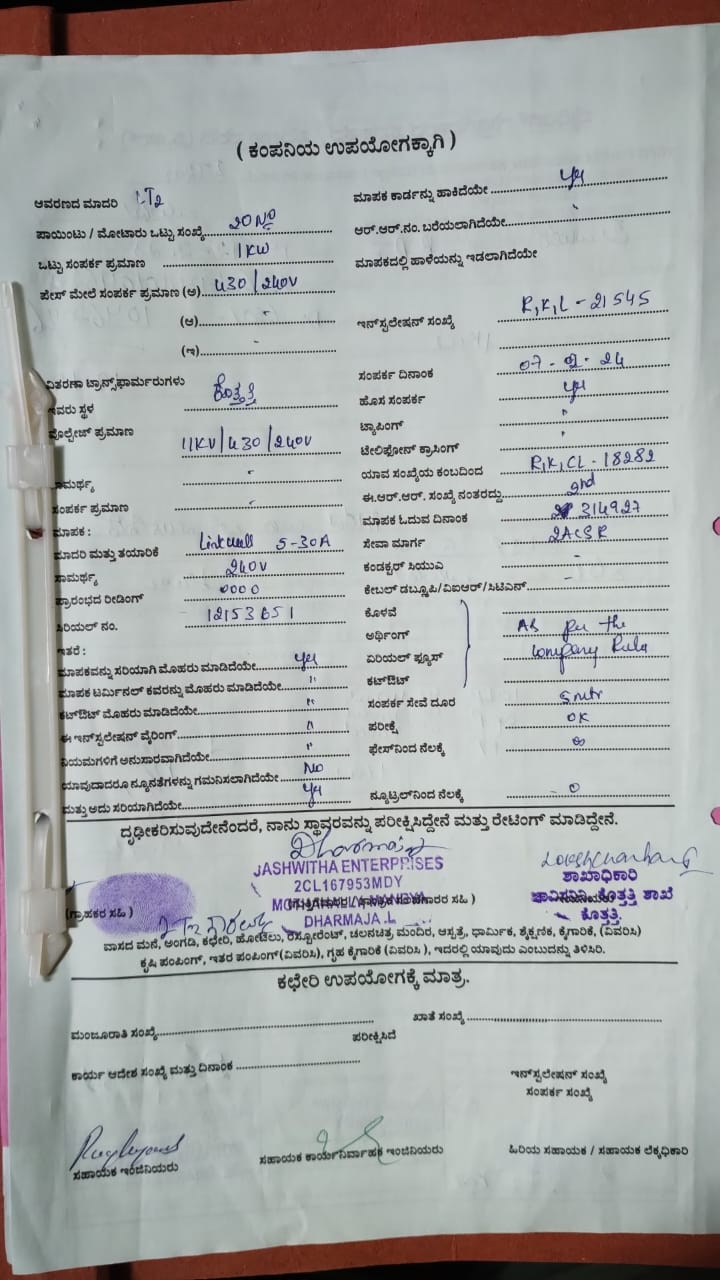 ( ಕಂಪನಿಯ ಉಪಯೋಗಕ್ಕಾಗಿ )
ಆವರಣದ ಮಾದರಿ LT2
ಮಾಪಕ ಕಾರ್ಡನ್ನು ಹಾಕಿದೆಯೇ yes
ಪಾಯಿಂಟು / ಮೋಟಾರು ಒಟ್ಟು ಸಂಖ್ಯೆ 20 No
ಆರ್.ಆರ್.ನಂ. ಬರೆಯಲಾಗಿದೆಯೇ "
ಒಟ್ಟು ಸಂಪರ್ಕ ಪ್ರಮಾಣ 1KW
ಮಾಪಕದಲ್ಲಿ ಹಾಳೆಯನ್ನು ಇಡಲಾಗಿದೆಯೇ
ಫೇಸ್ ಮೇಲೆ ಸಂಪರ್ಕ ಪ್ರಮಾಣ (ಅ) 430/240V
(ಆ) -
ಇನ್‌ಸ್ಟಲೇಷನ್ ಸಂಖ್ಯೆ R,K,L - 21545
(ಇ) -
ವಿತರಣಾ ಟ್ರಾನ್ಸ್‌ಫಾರ್ಮರುಗಳು
ಸಂಪರ್ಕ ದಿನಾಂಕ
ಇವರು ಸ್ಥಳ ಕೊತ್ತತ್ತಿ
ಹೊಸ ಸಂಪರ್ಕ yes
ವೋಲ್ಟೇಜ್ ಪ್ರಮಾಣ 11KV/430/240V
ಟ್ಯಾಪಿಂಗ್ "
ಟೆಲಿಫೋನ್ ಕ್ರಾಸಿಂಗ್ "
ಸಾಮರ್ಥ್ಯ -
ಯಾವ ಸಂಖ್ಯೆಯ ಕಂಬದಿಂದ R,K,CL - 18282
ಸಂಪರ್ಕ ಪ್ರಮಾಣ -
ಈ.ಆರ್.ಆರ್. ಸಂಖ್ಯೆ ನಂತರದ್ದು 2nd
ಮಾಪಕ :
ಮಾಪಕ ಓದುವ ದಿನಾಂಕ 314927
ಮಾದರಿ ಮತ್ತು ತಯಾರಿಕೆ Linkwell 5-30A
ಸೇವಾ ಮಾರ್ಗ 2ACSR
ಸಾಮರ್ಥ್ಯ 240V
ಕಂಡಕ್ಟರ್ ಸಿಯುವಿ -
ಪ್ರಾರಂಭದ ರೀಡಿಂಗ್ 0000
ಕೇಬಲ್ ಡಬ್ಲ್ಯೂಪಿ/ವಿಐಆರ್/ಸಿಟಿಎನ್ -
ಸಿರಿಯಲ್ ನಂ. 12153651
ಕೊಳವೆ
ಇತರೆ :
ಅರ್ಥಿಂಗ್ As per the
ಮಾಪಕವನ್ನು ಸರಿಯಾಗಿ ಮೊಹರು ಮಾಡಿದೆಯೇ yes
ಏರಿಯಲ್ ಫ್ಯೂಸ್ Company Rule
ಮಾಪಕ ಟರ್ಮಿನಲ್ ಕವರನ್ನು ಮೊಹರು ಮಾಡಿದೆಯೇ "
ಕಟ್‌ಔಟ್
ಕಟ್‌ಔಟ್ ಮೊಹರು ಮಾಡಿದೆಯೇ "
ಸಂಪರ್ಕ ಸೇವೆ ದೂರ 5mtr
ಈ ಇನ್‌ಸ್ಟಲೇಷನ್ ವೈರಿಂಗ್ "
ಪರೀಕ್ಷೆ OK
ನಿಯಮಗಳಿಗೆ ಅನುಸಾರವಾಗಿದೆಯೇ "
ಫೇಸ್‌ನಿಂದ ನೆಲಕ್ಕೆ
ಯಾವುದಾದರೂ ನ್ಯೂನತೆಗಳನ್ನು ಗಮನಿಸಲಾಗಿದೆಯೇ No
ಮತ್ತು ಅದು ಸರಿಯಾಗಿದೆಯೇ yes
ನ್ಯೂಟ್ರಲ್‌ನಿಂದ ನೆಲಕ್ಕೆ 0
ದೃಢೀಕರಿಸುವುದೇನೆಂದರೆ, ನಾನು ಸ್ಥಾವರವನ್ನು ಪರೀಕ್ಷಿಸಿದ್ದೇನೆ ಮತ್ತು ರೇಟಿಂಗ್ ಮಾಡಿದ್ದೇನೆ.
JASHWITHA ENTERPRISES
2CL167953MDY
DHARMAJA.L
ಶಾಖಾಧಿಕಾರಿ
ಚಾವಿಸನಿನಿ, ಕೊತ್ತತ್ತಿ ಶಾಖೆ
ಕೊತ್ತತ್ತಿ.
(ಗ್ರಾಹಕರ ಸಹಿ )
ವಾಸದ ಮನೆ, ಅಂಗಡಿ, ಕಛೇರಿ, ಹೋಟೆಲು, ರೆಸ್ಟೋರೆಂಟ್, ಚಲನಚಿತ್ರ ಮಂದಿರ, ಆಸ್ಪತ್ರೆ, ಧಾರ್ಮಿಕ, ಶೈಕ್ಷಣಿಕ, ಕೈಗಾರಿಕೆ, (ವಿವರಿಸಿ)
ಕೃಷಿ ಪಂಪಿಂಗ್, ಇತರ ಪಂಪಿಂಗ್(ವಿವರಿಸಿ), ಗೃಹ ಕೈಗಾರಿಕೆ (ವಿವರಿಸಿ ), ಇದರಲ್ಲಿ ಯಾವುದು ಎಂಬುದನ್ನು ತಿಳಿಸಿರಿ.
ಕಛೇರಿ ಉಪಯೋಗಕ್ಕೆ ಮಾತ್ರ.
ಮಂಜೂರಾತಿ ಸಂಖ್ಯೆ
ಖಾತೆ ಸಂಖ್ಯೆ
ಪರೀಕ್ಷಿಸಿದೆ
ಕಾರ್ಯ ಆದೇಶ ಸಂಖ್ಯೆ ಮತ್ತು ದಿನಾಂಕ
ಇನ್‌ಸ್ಟಲೇಷನ್ ಸಂಖ್ಯೆ
ಸಂಪರ್ಕ ಸಂಖ್ಯೆ
ಸಹಾಯಕ ಇಂಜಿನಿಯರು
ಸಹಾಯಕ ಕಾರ್ಯನಿರ್ವಾಹಕ ಇಂಜಿನಿಯರು
ಹಿರಿಯ ಸಹಾಯಕ / ಸಹಾಯಕ ಲೆಕ್ಕಧಿಕಾರಿ